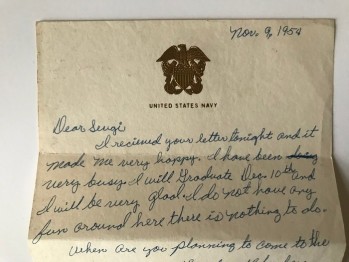 Nov. 9, 1954
UNITED STATES NAVY
Dear Suzi
I recieved your letter tonight and it
made me very happy. I have been doing
very busy. I will Graduate Dec. 10th and
I will be very glad. I do not have any
fun around here there is nothing to do.
When are you planning to come to the